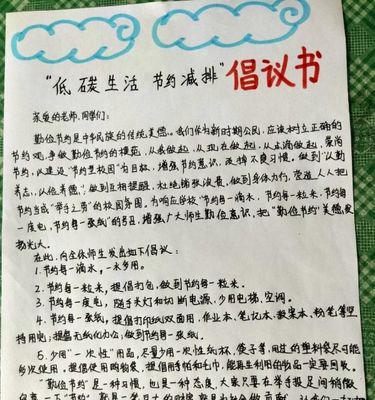 "低碳生活 节约减排"倡议书
亲爱的老师、同学们:
勤俭节约是中华民族的传统美德。我们作为新时期公民,应该树立正确的
节约观,争做勤俭节约的模范,从我做起,从现在做起,从点滴做起,崇尚
节约,以建设"节约型校园"为目标,增强节约意识,改掉不良习惯,做到"以勤
养志,以俭养德",做到互相提醒,杜绝铺张浪费,做到身体力行,营造人人把
节约当成"举手之劳"的校园氛围。为响应学校"节约每一滴水,节约每一粒米,节约每
一度电,节约每一张纸"的号召,增强广大师生勤俭意识,把"勤俭节约"美德发
扬光大。
在此,向全体师生发出如下倡议:
1.节约每一滴水,一水多用。
2.节约每一粒米,提倡打包,做到节约每一粒米。
3.节约每一度电,随手关灯和切断电源,少用电梯、空调。
4.节约每一张纸,提倡打印纸双面用,作业本、笔记本、教案本、粉笔等坚
持用完;提倡无纸化办公,做到节约每一张纸。
5.少用"一次性"用品,尽量少用一次性纸杯、筷子等,用过的塑料袋尽可能
多次使用。提倡使用购物袋,提倡用手帕和毛巾,能再生利用的物品一定要回收。
"勤俭节约"是一种习惯,也是一种态度,大家只要在举手投足间稍微